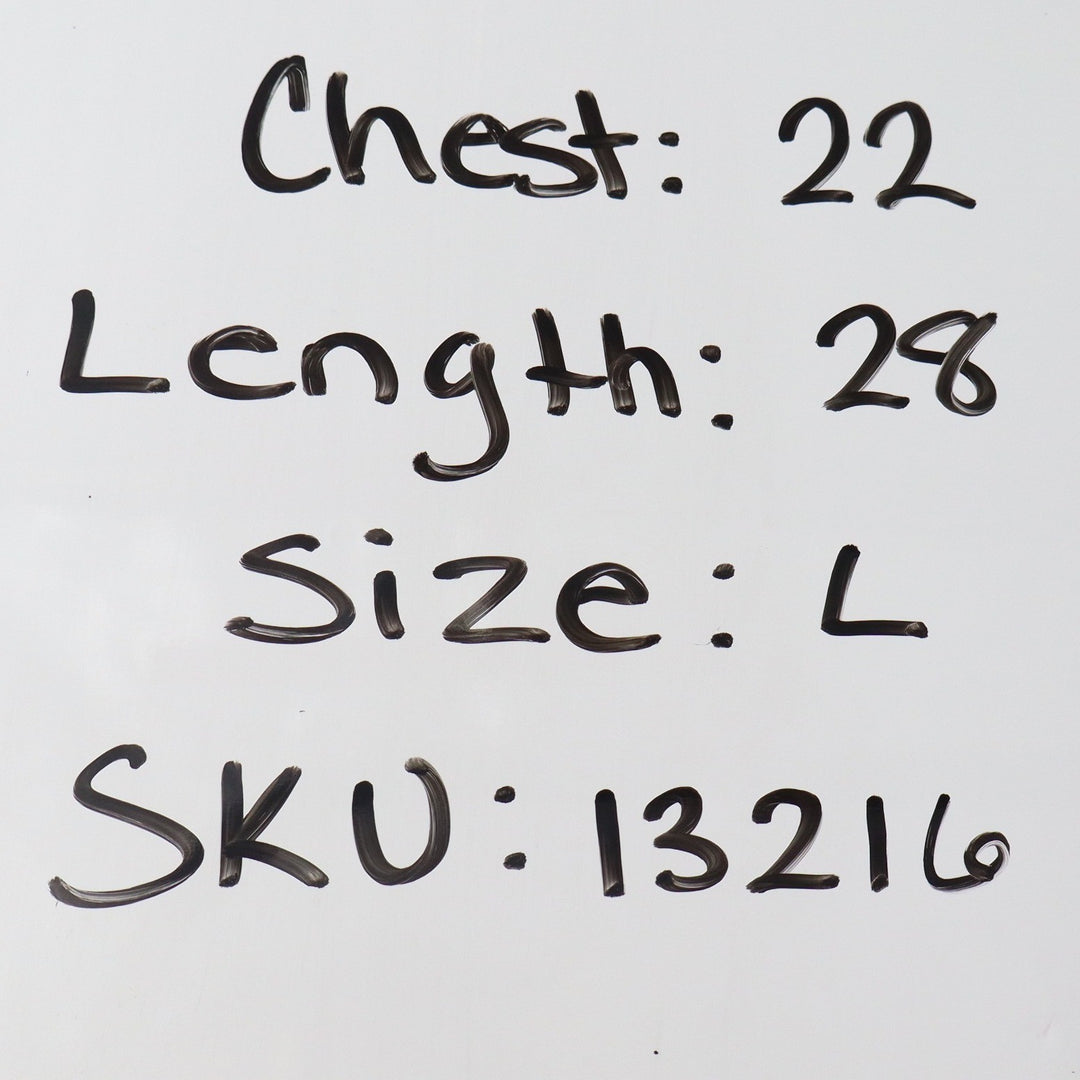 Chest: 22
Length: 28
Size: L
SKU: 13216